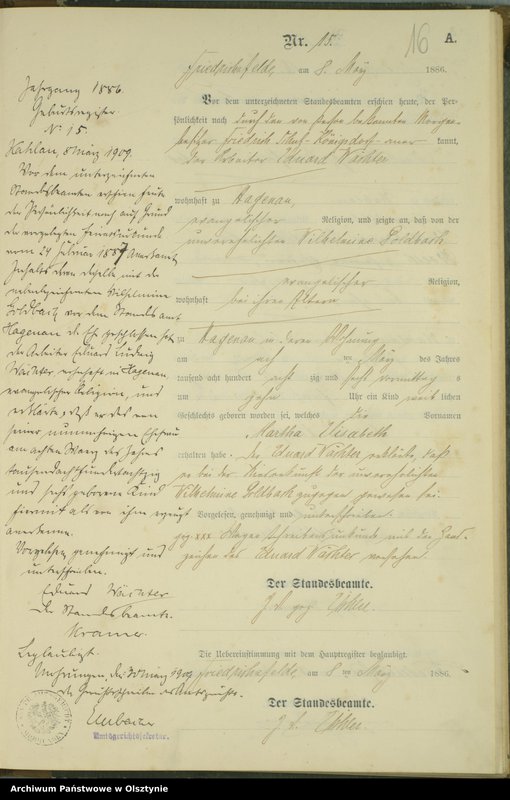 Nr. 15.
16
A.
am 8. May 1886.
Vor dem unterzeichneten Standesbeamten erschien heute, der Per-
sönlichkeit nach durch den von Person bekannten
Friedrich kannt,
der Arbeiter Eduard Wächter
wohnhaft zu Hagenau
evangelischer Religion, und zeigte an, daß von der
unverehelichten Wilhelmine Poldback
evangelischer Religion,
wohnhaft bei ihren Eltern
zu Hagenau in deren Wohnung
am acht ten May des Jahres
tausend acht hundert acht zig und sechs Vormittag s
um zehn Uhr ein Kind weib lichen
Geschlechts geboren worden sei, welches die Vornamen
Martha Elisabeth
erhalten habe. Der Eduard Wächter erklärte, daß
er bei der Niederkunft der unverehelichten
Wilhelmine Poldback zugegen gewesen sei.
Vorgelesen, genehmigt und unterschrieben
gez. xxx wegen Schreibensunkunde mit den Hand-
zeichen des Eduard Wächter versehen.
Der Standesbeamte.
Die Uebereinstimmung mit dem Hauptregister beglaubigt.
am 8 ten May 1886.
Der Standesbeamte.
Jahrgang 1886.
Geburtsregister
No 15.
Kahlau, 8 März 1909.
Vor dem unterzeichneten
Standesbeamten erschien heute
der Persönlichkeit nach auf Grund
der vorgelegten Heiratsurkunde
vom 24 Februar 1887 anerkannt
Inhalts deren derselbe mit der
nebenbezeichneten Wilhelmine
Poldback vor dem Standesamt
Hagenau die Ehe geschlossen hat,
der Arbeiter Eduard Ludwig
Wächter wohnhaft in Hagenau,
evangelischer Religion, und
erklärte, daß er das von
seiner nunmehrigen Ehefrau
am achten May des Jahres
tausendachthundertachtzig
und sechs geborene Kind
hiermit als von ihm erzeugt
anerkenne.
Vorgelesen genehmigt und
unterschrieben.
Eduard Wächter
Der Standesbeamte.
Kramer.
Beglaubigt.
Mohrungen, den 30 März 1909
Amtsgerichtssekretär.
Archiwum Państwowe w Olsztynie